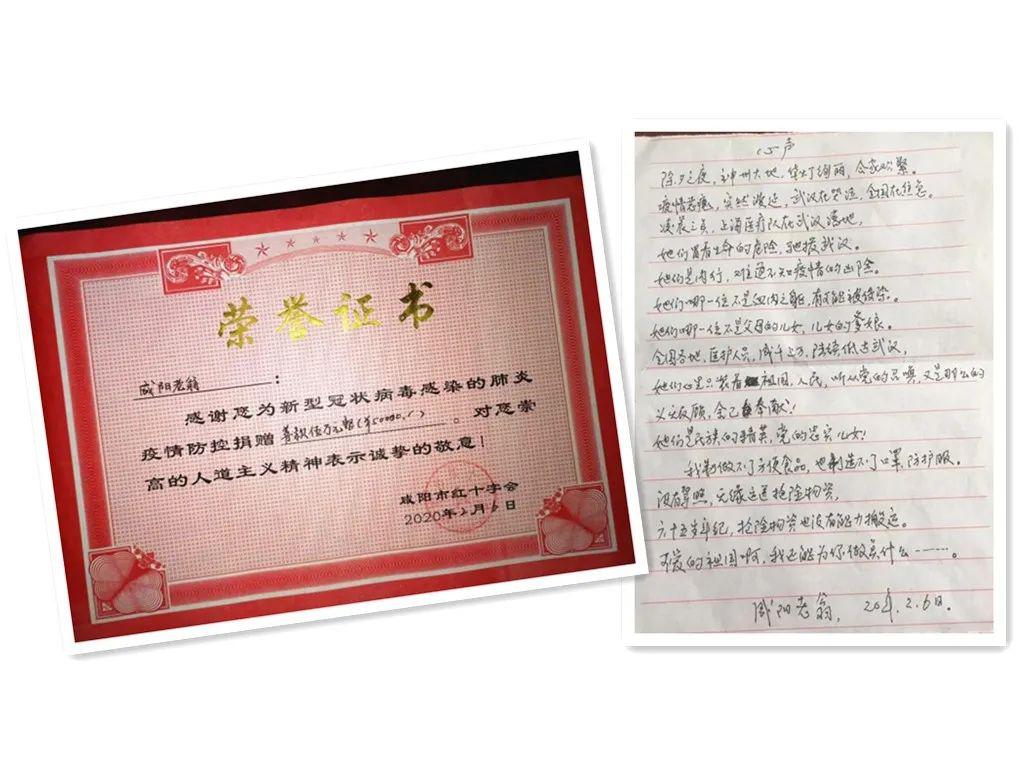 荣誉证书
咸阳老翁：
感谢您为新型冠状病毒感染的肺炎
疫情防控捐赠善款伍万元整(¥50000.)。对您崇
高的人道主义精神表示诚挚的敬意！
咸阳市红十字会
2020年2月6日
心声
除夕之夜，神州大地，华灯绚丽，合家欢聚。
疫情恶魔，突然漫延，武汉在哭泣，全国在
凌晨三点，上海医疗队在武汉落地，
她们冒着生命的危险，驰援武汉。
她们是内行，难道不知疫情的凶险。
她们哪一位不是血肉之躯，有可能被传染。
她们哪一位不是父母的儿女，儿女的爹娘。
全国各地，医护人员，成千上万，陆续抵达武汉，
她们心里只装着祖国，人民，听从党的召唤，又是那么的
义无反顾，舍己奉献！
她们是民族的精英，党的忠实儿女！
我做不了方便食品，也制造不了口罩，防护服。
没有驾照，无缘运送抢险物资，
六十五岁年纪，抢险物资也没有能力搬运。
可爱的祖国啊，我还能为你做
什么……。
咸阳老翁，2.6日.